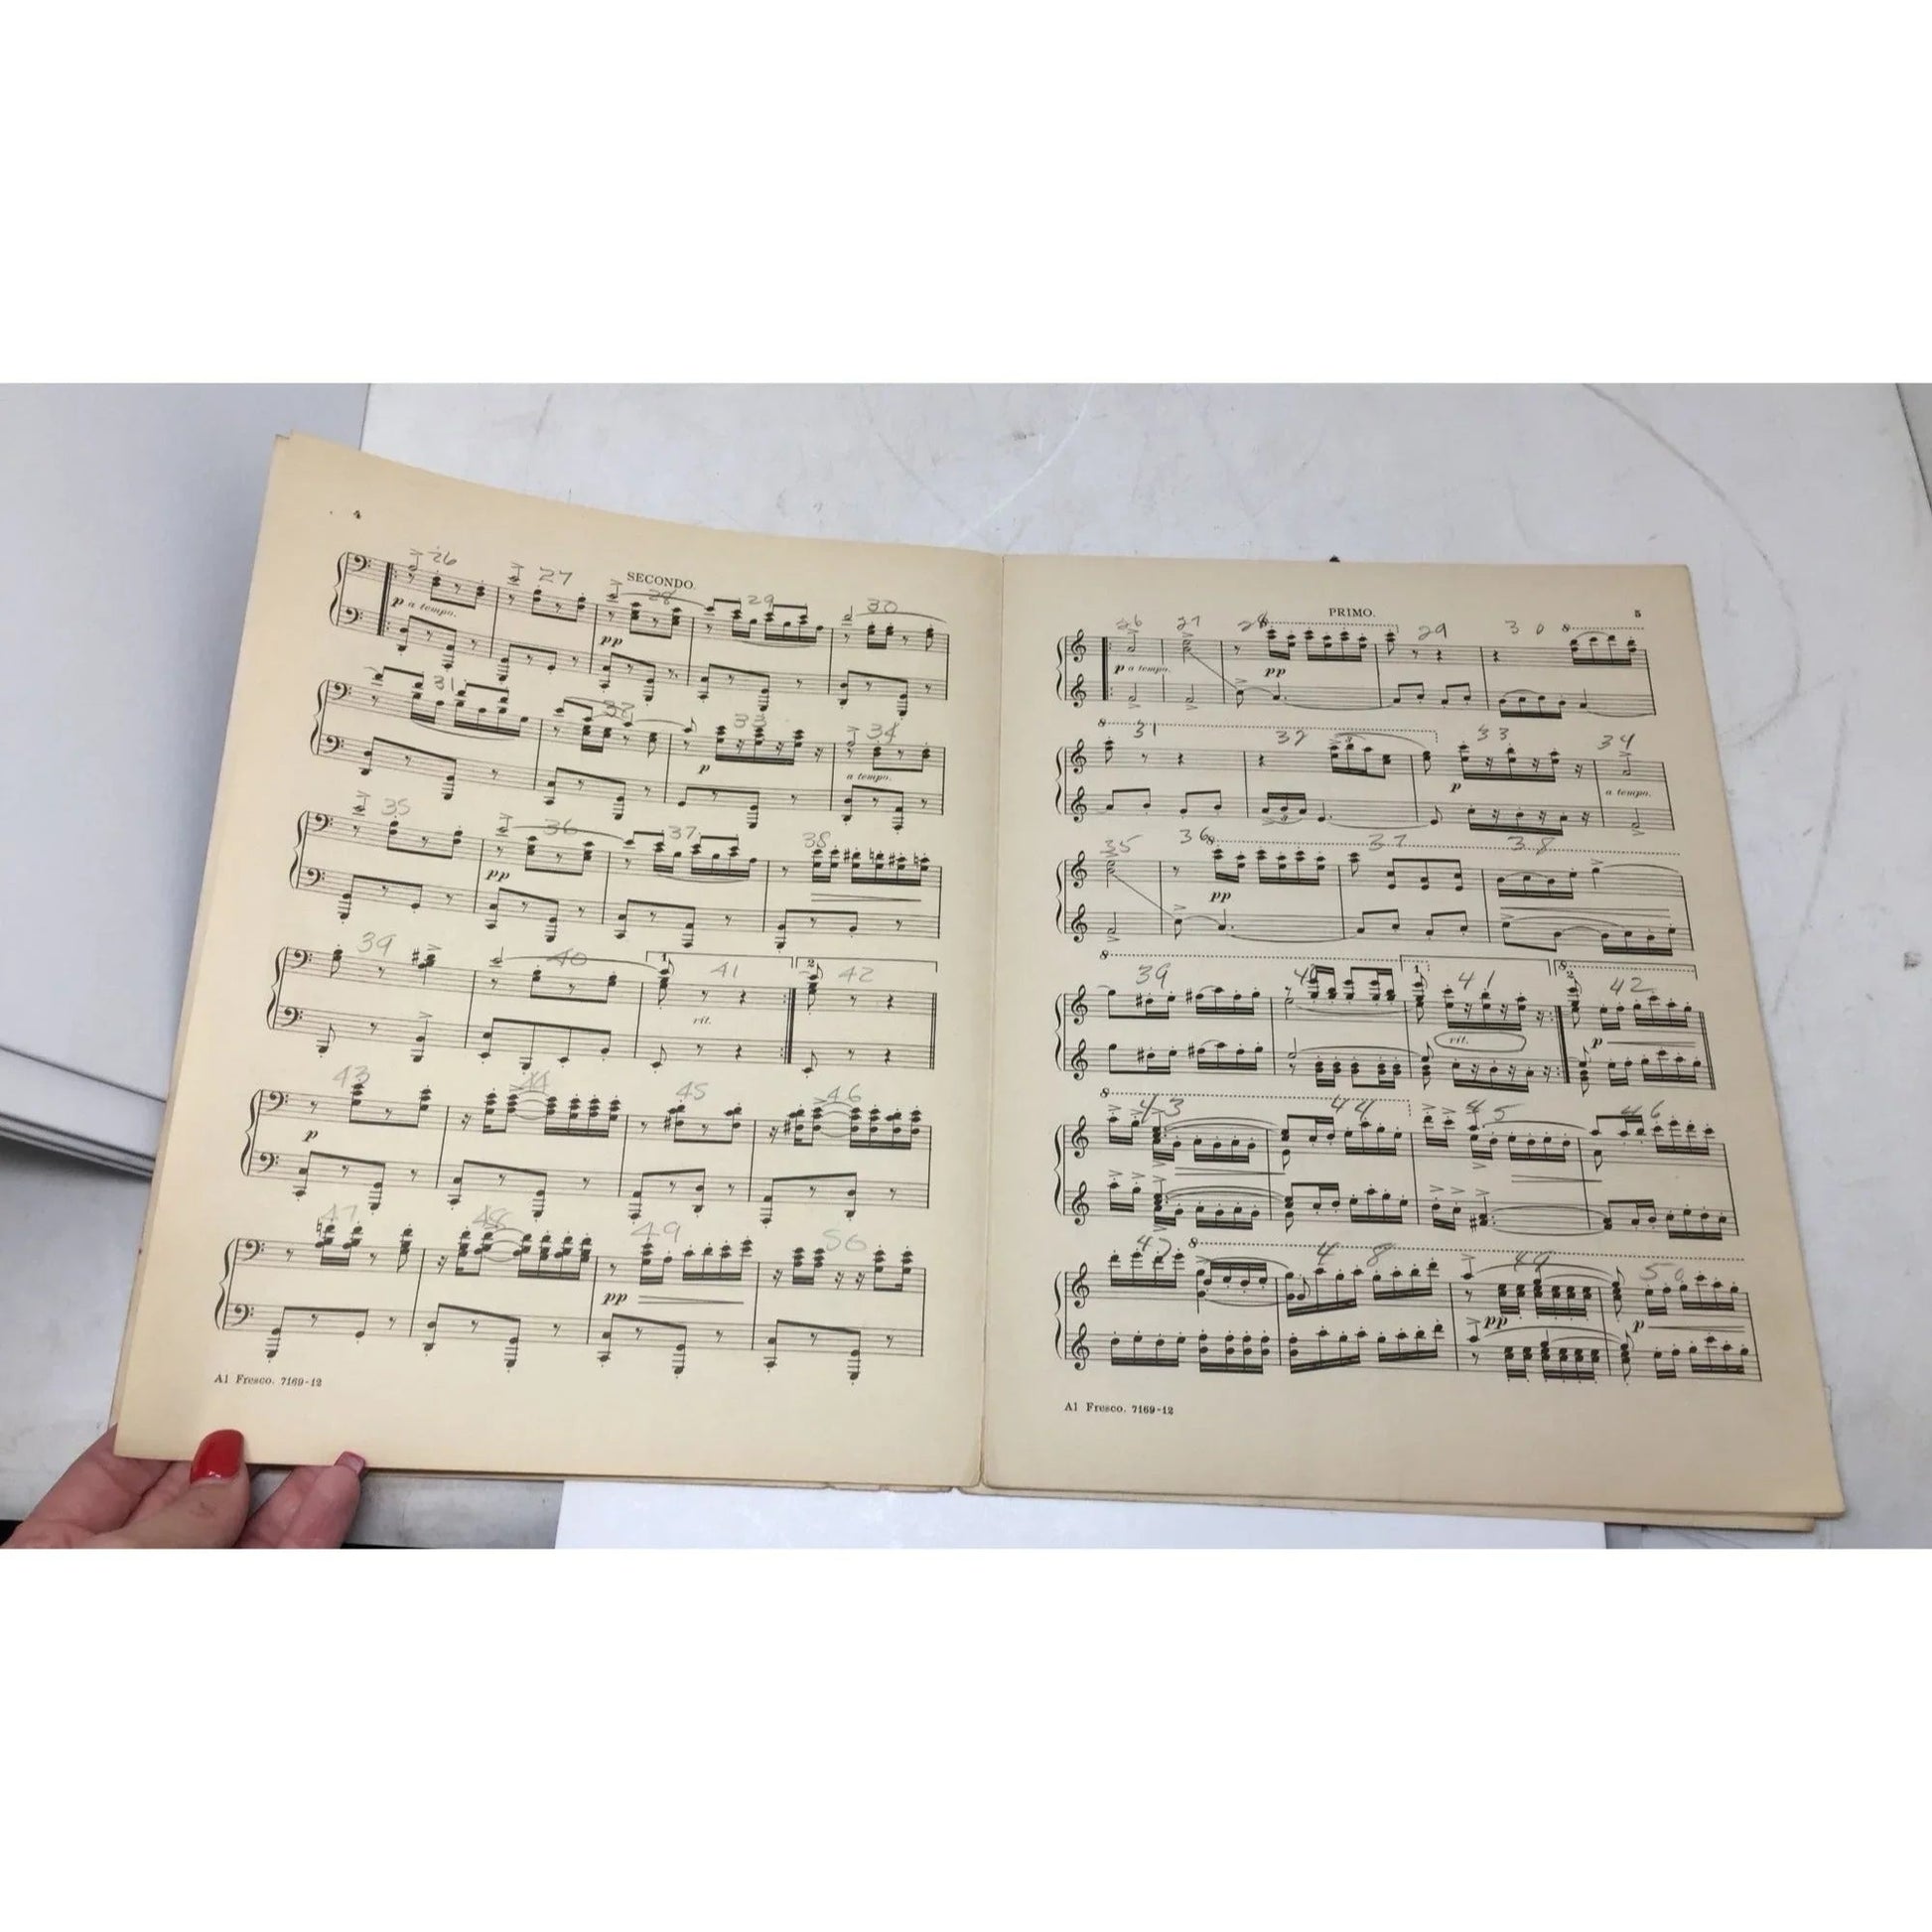 4
SECONDO.
26 27 28 29 30
p a tempo.
pp
31 32 33 34
p
a tempo.
35 36 37 38
pp
39 40 41 42
1 2
rit.
43 44 45 46
p
47 48 49 50
pp
Al Fresco. 7169-12
PRIMO.
5
26 27 28 29 30
8 8
p a tempo.
pp
8
31 32 33 34
p
a tempo.
35 36 37 38
8
pp
8
39 40 41 42
1 8 2
rit.
p
8
43 44 45 46
47 48 49 50
8
pp
p
Al Fresco. 7169-12